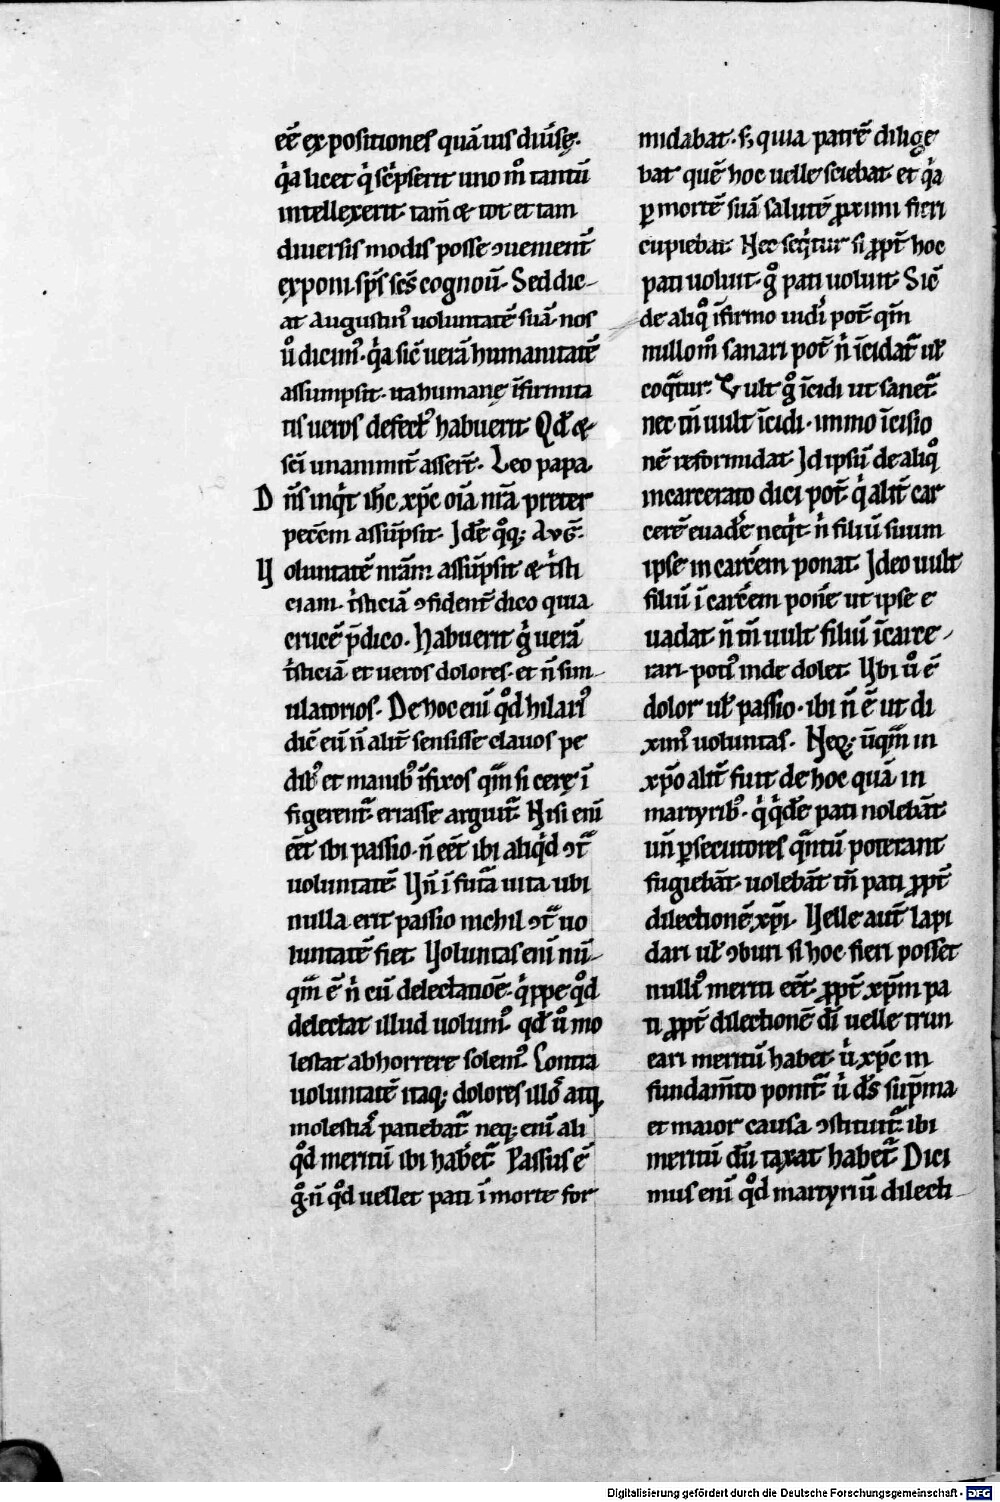 eē expositiones quā uis diūsę.
q̇a licet q̇ sc̓pserit uno m̊ tantū
intellexerit. tam̄ & tot et tam
diuersis modis posse ɔuenient̄
exponi. sps̄ sc̄s cognoū. Sed dic-
at augustinꝰ uoluntatē suā. nos
ů dicimꝰ. q̇a sic̄ uerā humanitatē
assumpsit. ita humanę īfirmita
tis ueros defectꝰ habuerit. Qd̄ &
sc̄i unanimit̄ assert̄. Leo papa
Dn̄s inq̇t ih̄c xp̄c oīa nr̄a preter
pecc̄m assūpsit. Idē q̊q; AvG̅.
Voluntatē nr̄am assūpsit & t̓sti
ciam. t̓sticiā ɔfident̄ dico quia
crucē p̄dico. Habuerit g̓ uerā
t̓sticiā. et ueros dolores. et n̄ sim-
ulatorios. De hoc enī q̊d hilariꝰ
dic̄ eū n̄ alit̄ sensisse clauos pe
dibꝰ et manibꝰ īfixos qm̄ si cerę ī
figerent̄. errasse arguit̄. Nisi enī
eēt ibi passio. n̄ eēt ibi aliq̊d ɔt̄
uoluntatē. Vn̄ ī fut̄a uita ubi
nulla erit passio nichil ɔt̄ uo
luntatē fiet. Voluntas enī nū-
qm̄ ē n̓ cū delectatiōe. q̓ppe q̊d
delectat illud uolumꝰ. qd̄ ů mo
lestat abhorrere solemꝰ. Contra
uoluntatē itaq; dolores illoꝝ atq,
molestiā patiebat̄. neq; enī ali
q̊d meritū ibi hab̓et̄. Passus ē
g̊ n̄ q̊d uellet pati ī morte for
midabat. s; quia patrē dilige
bat quē hoc uelle sciebat. et q̇a
ꝑ mortē suā salutē ꝓximi fieri
cupiebat. Nec seq̇tur si ꝓpt̄ hoc
pati uoluit. g̊ pati uoluit. Sic̄
de aliq̊ īfirmo uidi pot̄ qm̄
nullom̊ sanari pot̄ n̓ īcidat̄ ul̄
coq̄tur. Vult g̊ īcidi ut sanet̄
nec tn̄ uult īcidi. immo īcisio
nē reformidat. Id ipsū de aliq̊
incarcerato dici pot̄ q̓ alit̄ car
cerē euadē neq̇t. n̓ filiū suum
ipse in carcēm ponat. Ideo uult
filiū ī carcēm ponē ut ipse e
uadat n̄ tn̄ uult filiū īcarce-
rari. potiꝰ inde dolet. Vbi ů ē
dolor ul̄ passio. ibi n̄ ē ut di
ximꝰ uoluntas. Neq; ūqm̄ in
xp̄o alit̄ fuit de hoc quā in
martyribꝰ. q̓ q̓dē pati nolebāt.
un̄ ꝑsecutores q̄ntū poterant
fugiebāt. uolebāt tn̄ pati ꝓpt̄
dilectionē xp̄i. Velle aut̄ lapi
dari ul̄ ɔburi si hoc fieri posset
nulliꝰ meriti eēt. ꝓpt̄ xp̄m pa
ti ꝓpt̄ dilectionē dī uelle trun
cari meritū habet. ů xp̄c in
fundam̄to ponit̄. ů d̄s sup̄ma
et maior causa ɔstituit̄. ibi
meritū dū taxat habet̄. Dici
mus enī q̊d martyriū dilecti-
Digitalisierung gefördert durch die Deutsche Forschungsgemeinschaft - DFG